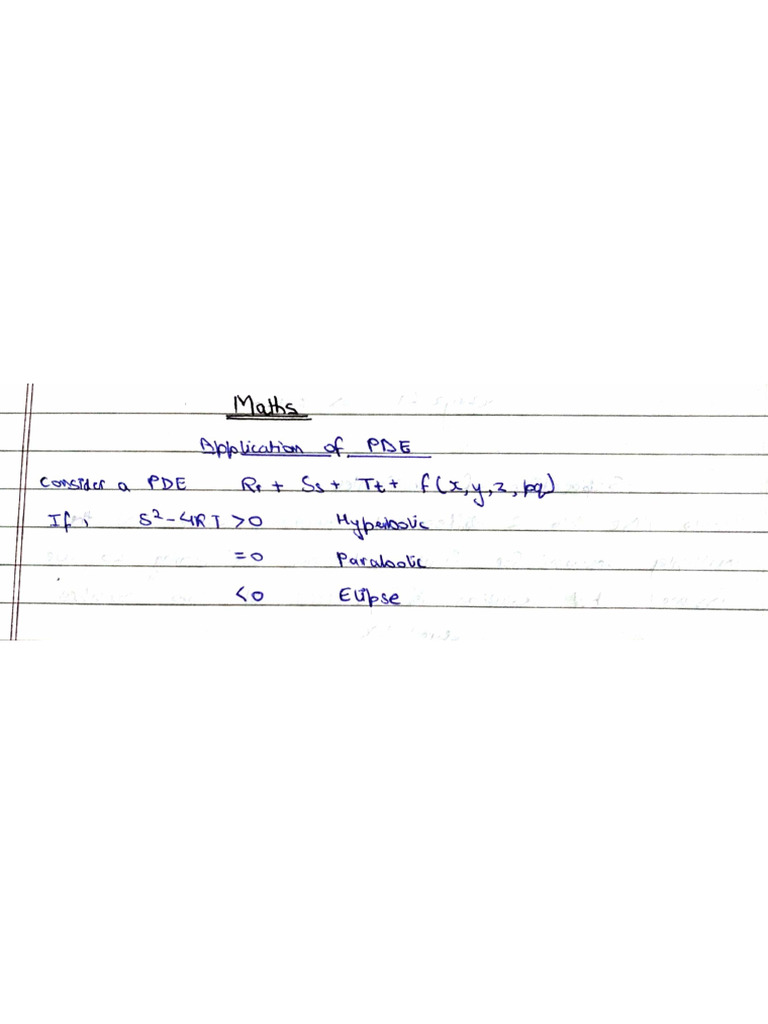 Maths
Application of PDE
Consider a PDE Rr + Ss + Tt + f(x, y, z, pq)
If, S² - 4RT > 0 Hyperbolic
= 0 Parabolic
< 0 Elipse